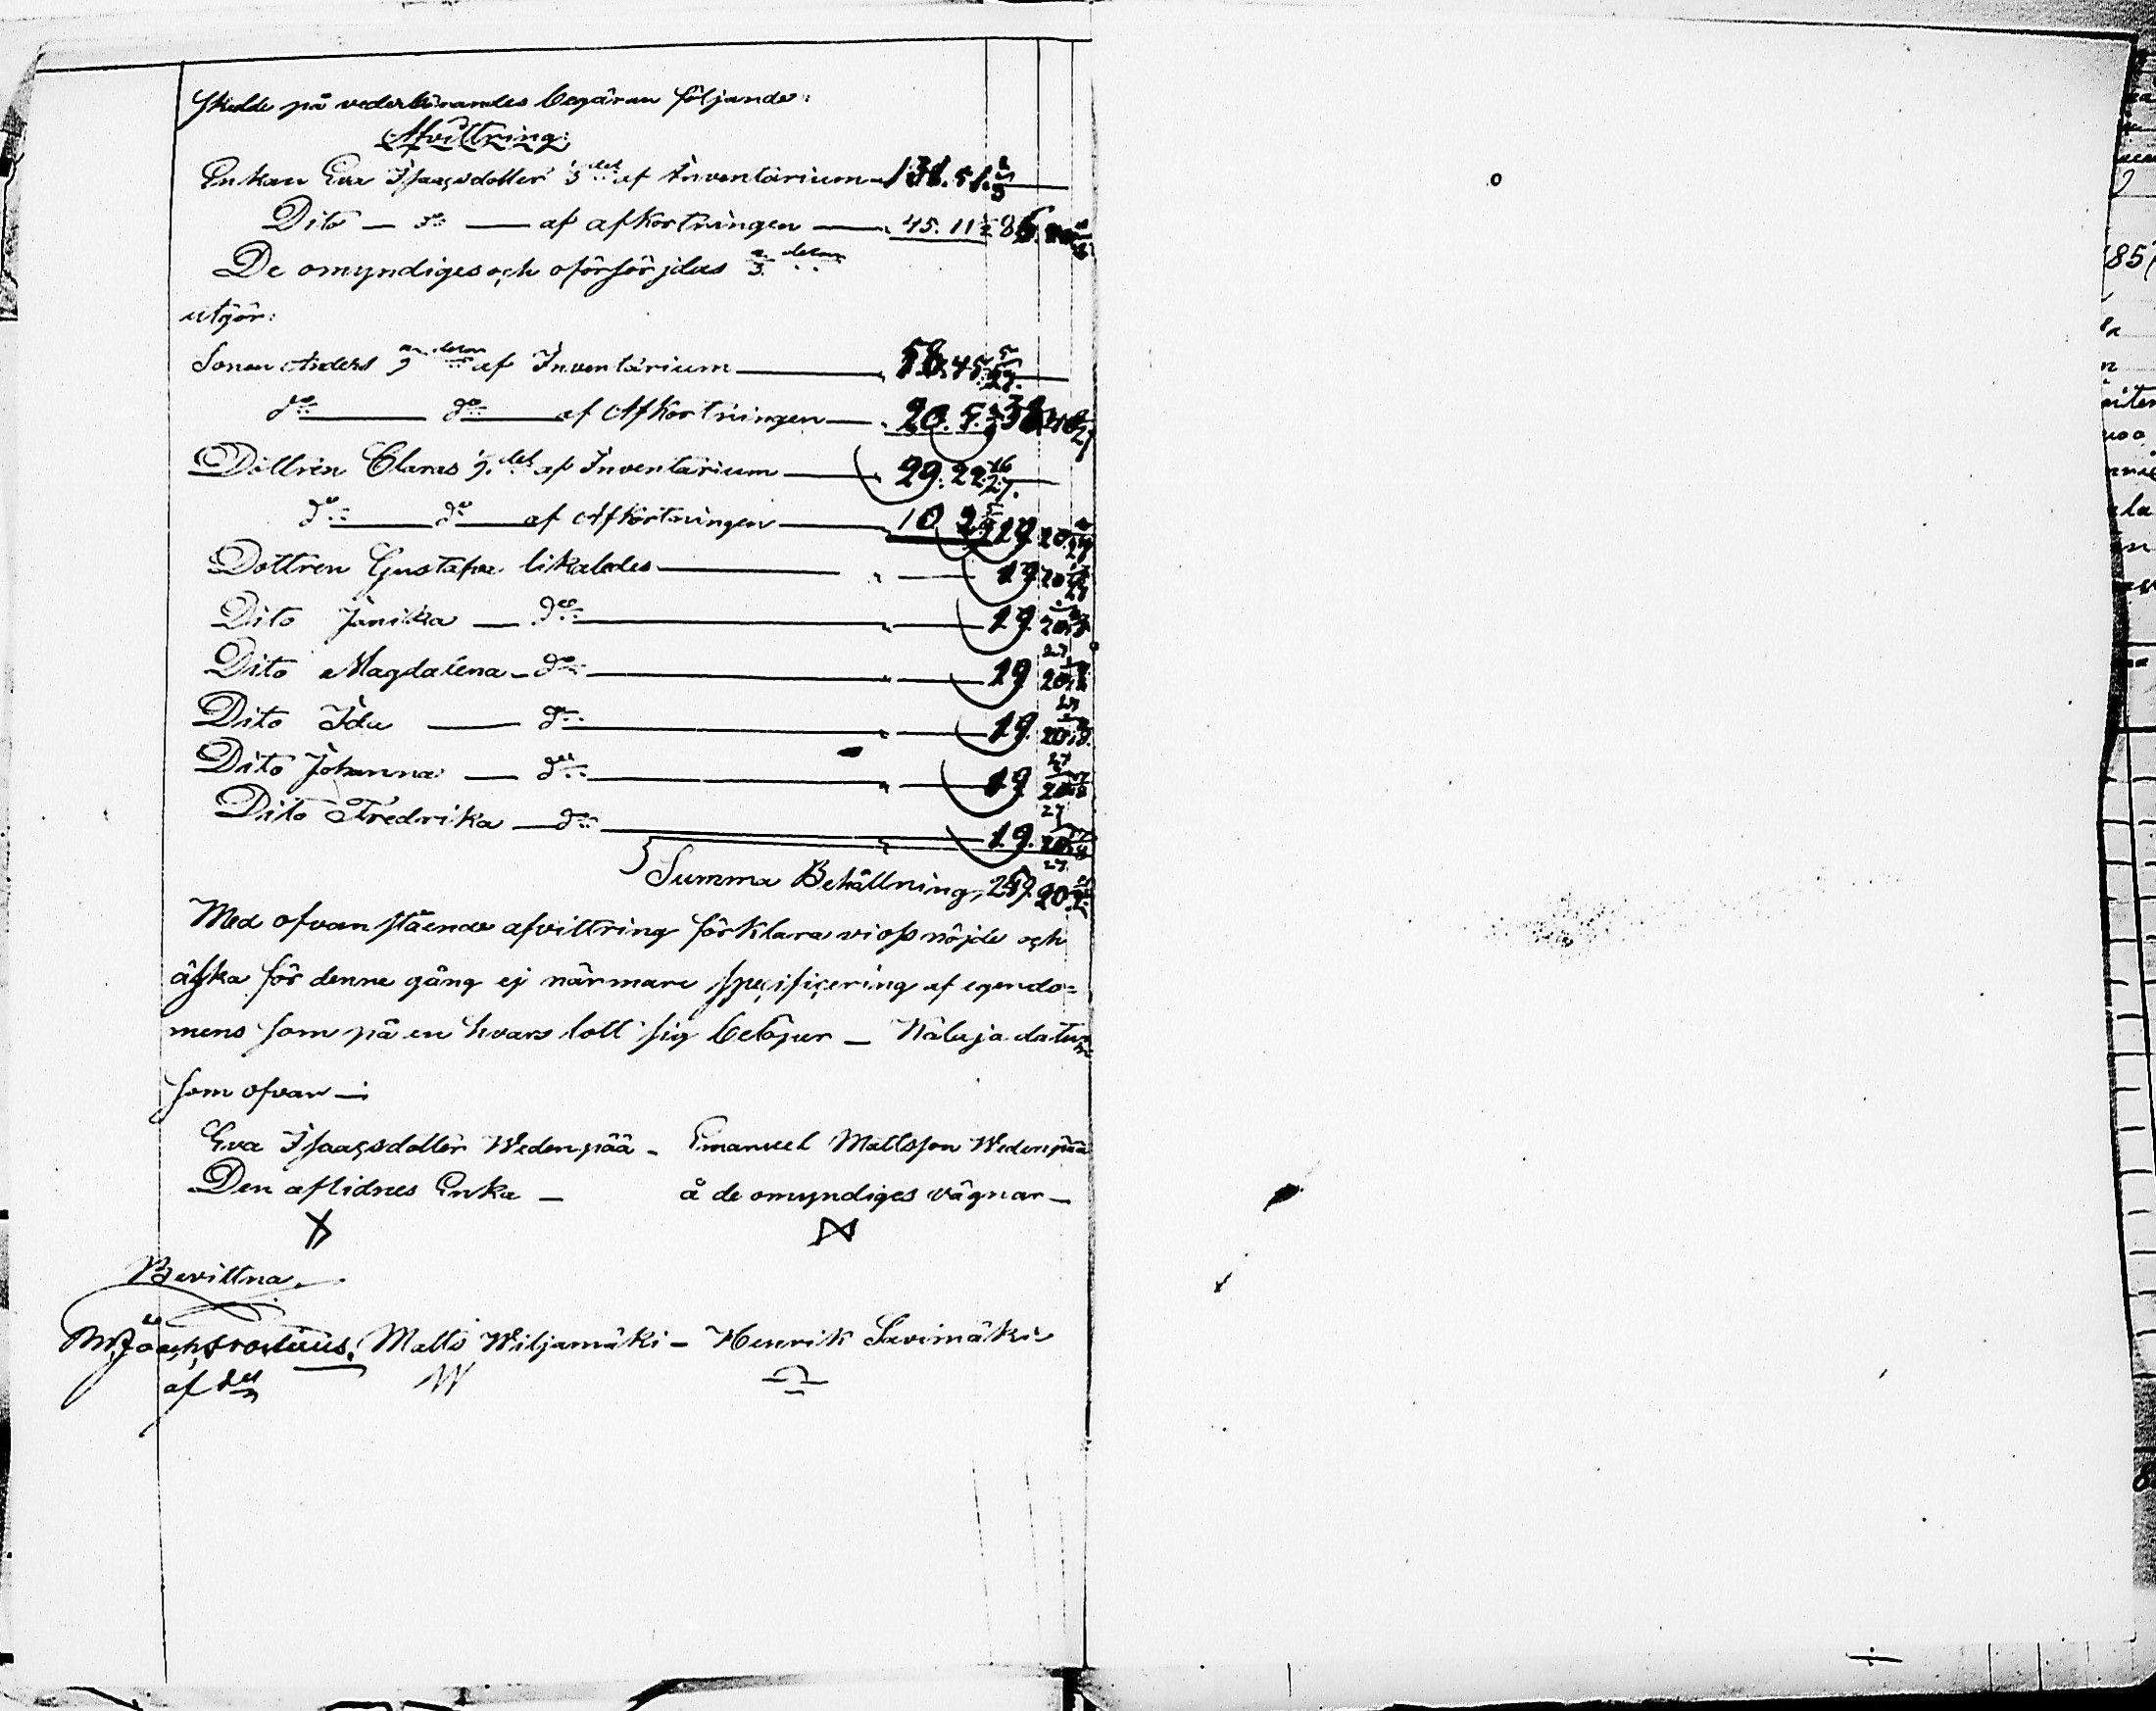 skedde på vederbörandes begäran följande:
Afvittring:
Enkan Eva Isaacsdotter 1/3 del af Inventarium 131. 51. 2/3
Dito — do — af afkortningen — 45. 11
De omyndiges och oförsörjdas 2/3 delar
utgör:
Sonen Anders 2/9 delar af Inventarium 58. 45. 5/27
do do af Afkortningen — 20. 5.
Dottren Claras 1/9 del af Inventarium 29. 22. 16/27
do do af Afkortningen 10 2 19 20
Dottren Gustafva likaledes 19 20
Dito Janika — do 19 20
Dito Magdalena — do 19 20
Dito Ida — do 19 20
Dito Johanna — do 19 20
Dito Fredrika — do 19. 20
Summa Behållning, 259. 20
Med ofvanstående afvittring förklara vi oss nöjde och
äska för denne gång ej närmare specificering af egendo=
mens som på en hvars lott sig belöper — datum
som ofvan —
Eva Isaacsdotter Wedenpää — Emanuel Mattsson Wedenpää
Den aflidnes Enka — å de omyndiges vägnar —
Bevittna
Matts Wiljamäki — Henrik Savimäki
af